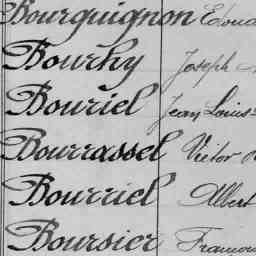 Bourguignon
Bourhy Joseph
Bouriel Jean Louis
Bourrassel Victor
Bourriel Albert
Boursier